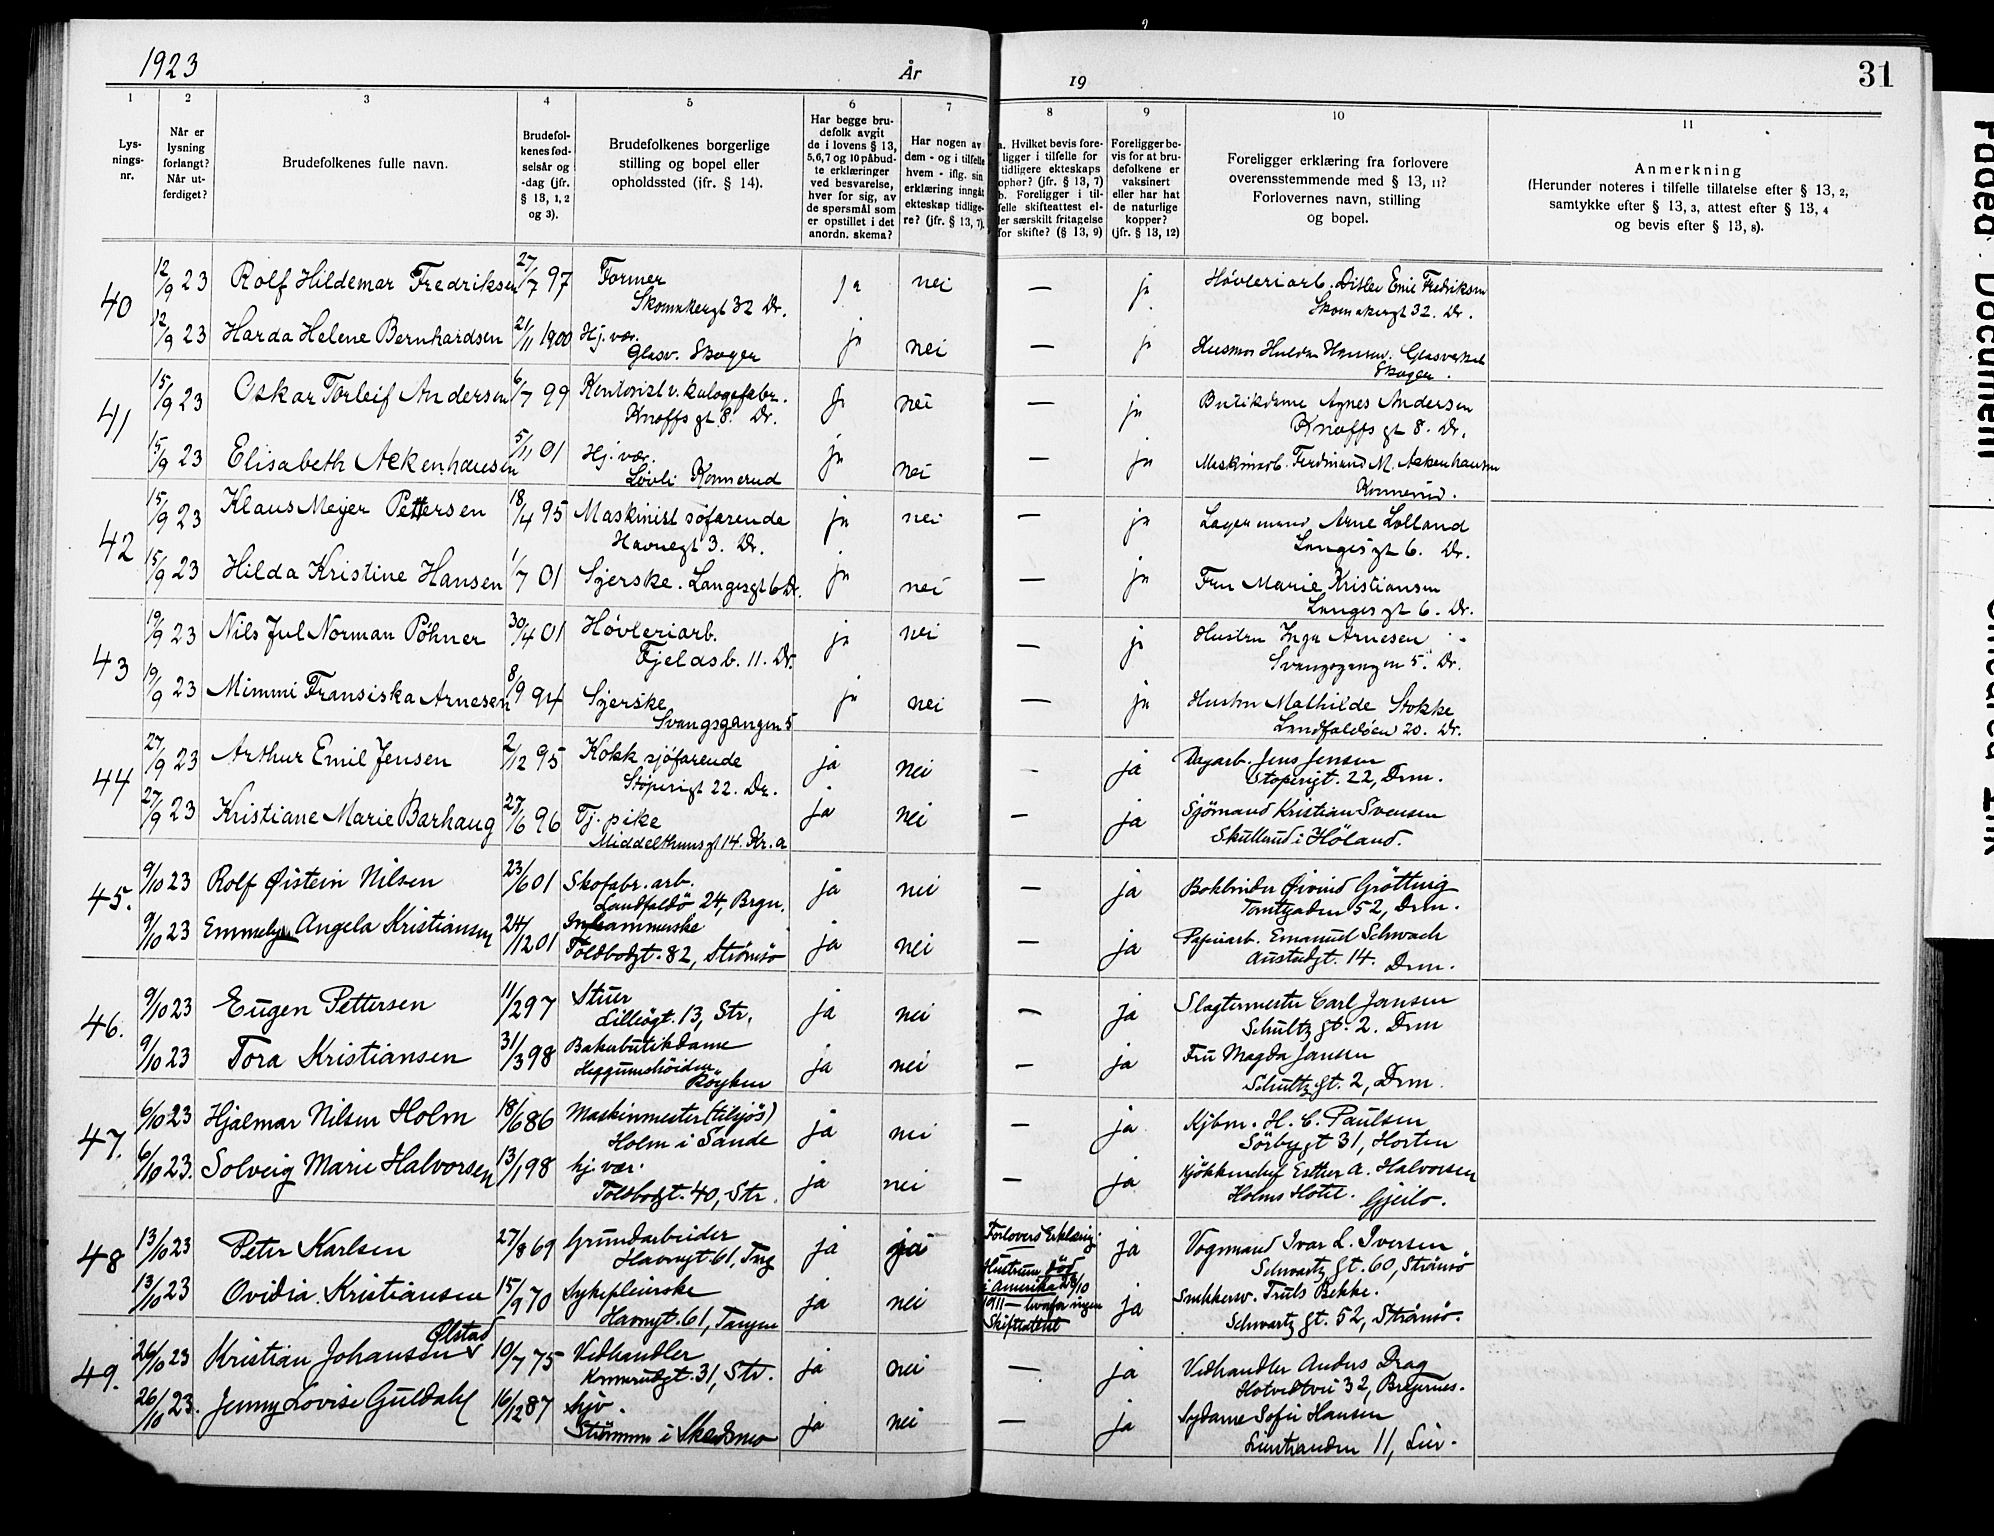 1923
År
19
31
1
2
3
4
5
6
7
8
9
10
11
Lys-
nings-
nr.
Når er
lysning
forlangt?
Når ut-
ferdiget?
Brudefolkenes fulle navn.
Brudefol-
kenes fød-
selsår og
-dag (jfr.
§ 13, 1, 2
og 3).
Brudefolkenes borgerlige
stilling og bopel eller
opholdssted (jfr. § 14).
Har begge bru-
defolk avgit
de i lovens § 13,
5,6,7 og 10 påbud-
te erklæringer
ved besvarelse,
hver for sig, av
de spørsmål som
er opstillet i det
anordn. skema?
Har nogen av
dem - og i tilfelle
hvem - iflg. sin
erklæring inngåt
ekteskap tidlige-
re? (jfr. § 13, 7).
a. Hvilket bevis fore-
ligger i tilfelle for
tidligere ekteskaps
ophør? (jfr. § 13, 7)
b. Foreligger i til-
felle skifteattest el-
ler særskilt fritagelse
for skifte? (§ 13, 9)
Foreligger be-
vis for at bru-
defolkene er
vaksinert
eller har hat
de naturlige
kopper?
(jfr. § 13, 12)
Foreligger erklæring fra forlovere
overensstemmende med § 13, 11?
Forlovernes navn, stilling
og bopel.
Anmerkning
(Herunder noteres i tilfelle tillatelse efter § 13, 2,
samtykke efter § 13, 3, attest efter § 13, 4
og bevis efter § 13, 8).
40
12/9 23 Rolf Hildemar Fredriksen 27/7 97 Former ja nei — ja Høvleriarb. Ditlev Emil Fredriksen
Skomakergt 32 Dr. Skomakergt 32. Dr.
12/9 23 Harda Helene Bernhardsen 21/11 1900 Hj. vær. ja nei — ja Husmor Hulda Hansen. Glasverket
Glasv. Skoger Skoger.
41
15/9 23 Oskar Torleif Andersen 6/7 99 Kontorist v. kalogefabr. ja nei — ja Butikdame Agnes Andersen
Knoffs gt 8. Dr. Knoffs gt 8. Dr.
15/9 23 Elisabeth Ackenhausen 5/11 01 Hj. vær. ja nei — ja Maskinarb. Ferdinand M. Ackenhausen
Løvli Konnerud Konnerud.
42
15/9 23 Klaus Meyer Pettersen 18/4 95 Maskinist søfarende ja nei — ja Lagermand Arne Lolland
Havnegt 3. Dr. Langesgt 6. Dr.
15/9 23 Hilda Kristine Hansen 1/7 01 Syerske. Langesgt 6 Dr. ja nei — ja Fru Marie Kristiansen
Langesgt 6. Dr.
43
19/9 23 Nils Jul Norman Pöhner 30/4 01 Høvleriarb. ja nei — ja Hustru Inga Arnesen
Fjeldsb. 11. Dr. Svangsgangen 5. Dr.
19/9 23 Mimmi Fransiska Arnesen 8/9 94 Syerske ja nei — ja Hustru Mathilde Stokke
Svangsgangen 5 Landfaldøen 20. Dr.
44
27/9 23 Arthur Emil Jensen 2/12 95 Kokk sjøfarende ja nei — ja Dagarb. Jens Jensen
Støperigt 22. Dr. Støperigt. 22, Drm.
27/9 23 Kristiane Marie Barhaug 27/6 96 Tj. pike ja nei — ja Sjömand Kristian Svensen
Middelthunsgt 14. Kr.a Skullerud i Höland.
45.
9/10 23 Rolf Øistein Nilsen 23/6 01 Skofabr. arb. ja nei — ja Bokbinder Öivind Grötting
Landfaldö 24, Brgn. Tomtegaden 52, Drm.
9/10 23 Emmely Angela Kristiansen 24/12 01 Inrammerske ja nei — ja Papirarb. Emanuel Schwach
Toldbodgt. 82, Strömsö Austadgt. 14. Drm.
46.
9/10 23 Eugen Pettersen 11/2 97 Stuer ja nei — ja Slagtermester Carl Jansen
Lilleögt. 13, Str. Schultz gt. 2. Drm
9/10 23 Tora Kristiansen 31/3 98 Bakerbutikdame ja nei — ja Fru Magda Jansen
Heggumshöiden Röyken Schultz gt. 2, Drm.
47.
6/10 23 Hjalmar Nilsen Holm 18/6 86 Maskinmester (tilsjös) ja nei — ja Kjbm. H. C. Paulsen
Holm i Sande Sörbygt 31, Horten
6/10 23. Solveig Marie Halvorsen 13/1 98 hj. vær. ja nei — ja Kjökkenchef Esther A. Halvorsen
Toldbodgt. 40, Str. Holms Hotel. Gjeilo.
48
13/10 23 Peter Karlsen 27/8 69 Grundarbeider ja ja Forlovers Erklæring. ja Vognmand Ivar L. Iversen
Havnegt. 61, Tng Hustruen död Schwartz gt. 60, Strömsö
13/10 23 Ovidia Kristiansen 15/9 70 Sykepleierske ja nei i Amerika 28/10 ja Snekkersv. Truls Bekke.
Havnegt. 61, Tangen 1911 — hvorfor ingen Schwartz gt. 52, Strömsö.
Skifteattest
49.
Ølstad
26/10 23 Kristian Johansen 10/7 75 Vedhandler ja nei — ja Vedhandler Anders Drag
Konnerudgt. 31, Str. Hotvedtvei 32, Bragernes.
26/10 23. Jenny Lovise Guldahl 16/12 87 hjv. ja nei — ja Sydame Sofie Hansen
Strömmen i Skedsmo Lierstranden 11, Lier.